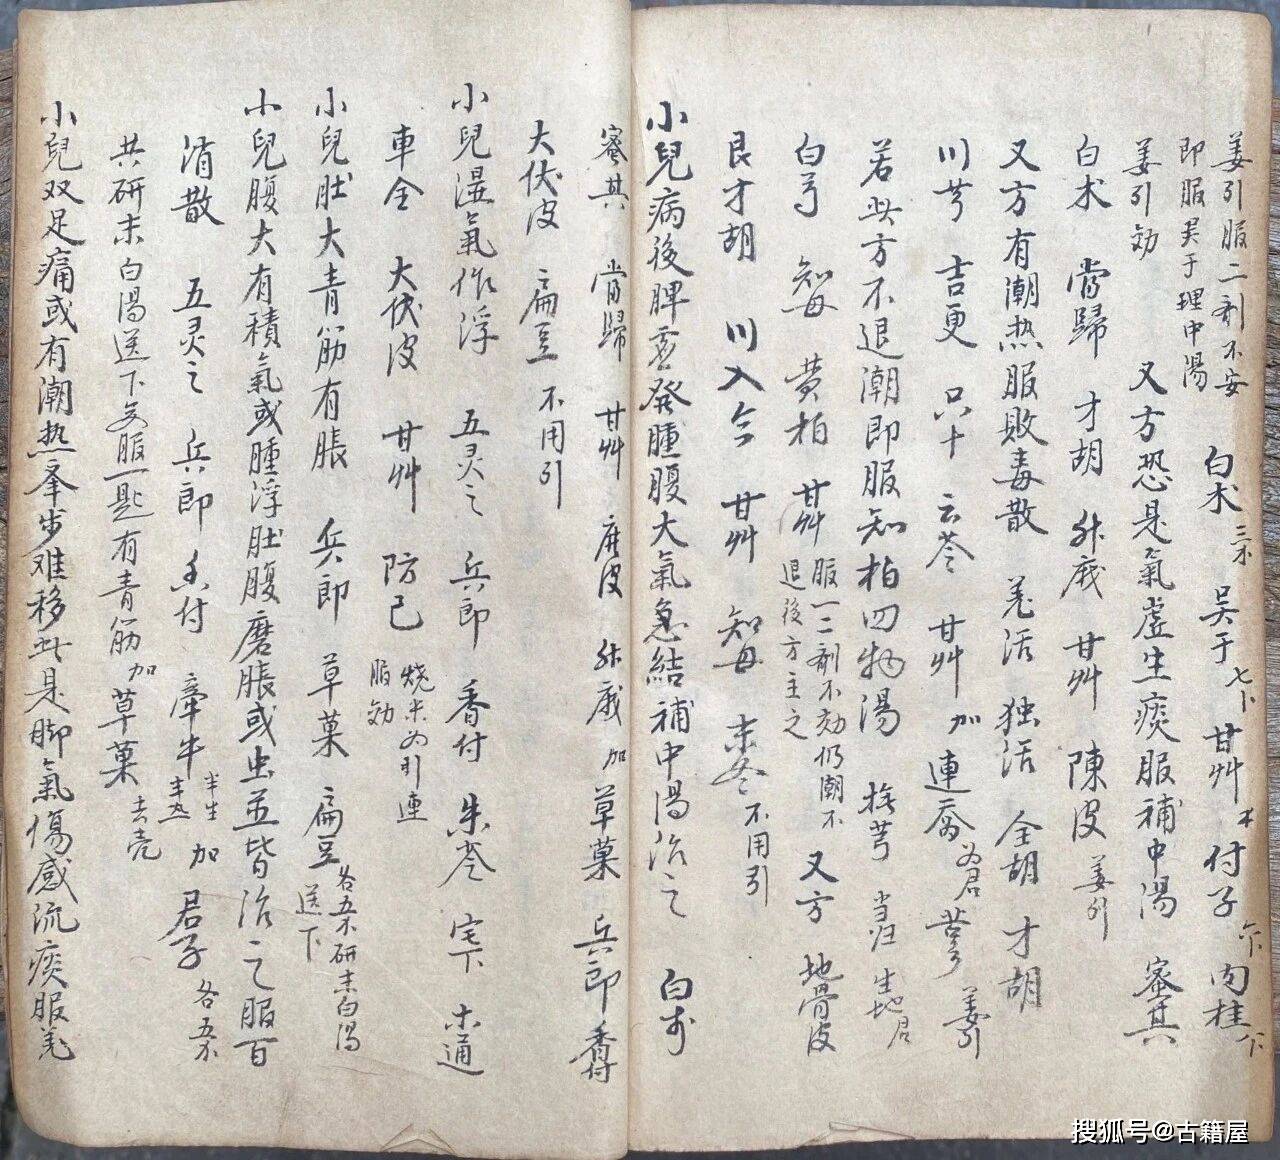 姜引服二剂不安
即服吴于理中湯
白术 三不 吴于 七卜 甘艸 付子 个卜 肉桂 卜
姜引効
又方恐是氣虚生痰服補中湯 蜜其
白术 當歸 才胡 升麻 甘艸 陳皮 姜引
又方有潮热服敗毒散 羌活 独活 全胡 才胡
川芎 吉更 只十 云苓 甘艸 加 連翹 为君 姜引
若此方不退潮即服知柏四物湯 撫芎 当归 生地 君
白芍 知母 黄柏 甘艸 服一二剂不効仍潮不
退後方主之
又方 地骨皮
艮才胡 川入今 甘艸 知母 麦冬 不用引
小兒病後脾虚發腫腹大氣急結補中湯治之 白术
蜜其 當歸 甘艸 陳皮 升麻 加 草菓 兵郎 香付
大伏皮 扁豆 不用引
小兒濕氣作浮 五灵之 兵郎 香付 朱苓 宅下 木通
車全 大伏皮 甘艸 防己 燒米为引連
服効
小兒肚大青筋有脹 兵郎 草菓 扁豆 各五不研末白湯
送下
小兒腹大有積氣或腫浮肚腹磨脹或虫並皆治之服百
消散 五灵之 兵郎 香付 牽牛 半生
半热 加 君子 各五不
共研末白湯送下每服一匙有青筋加草菓 去壳
小兒双足痛或有潮热牵步难移此是脚氣傷感流痰服羌
搜狐号@古籍屋